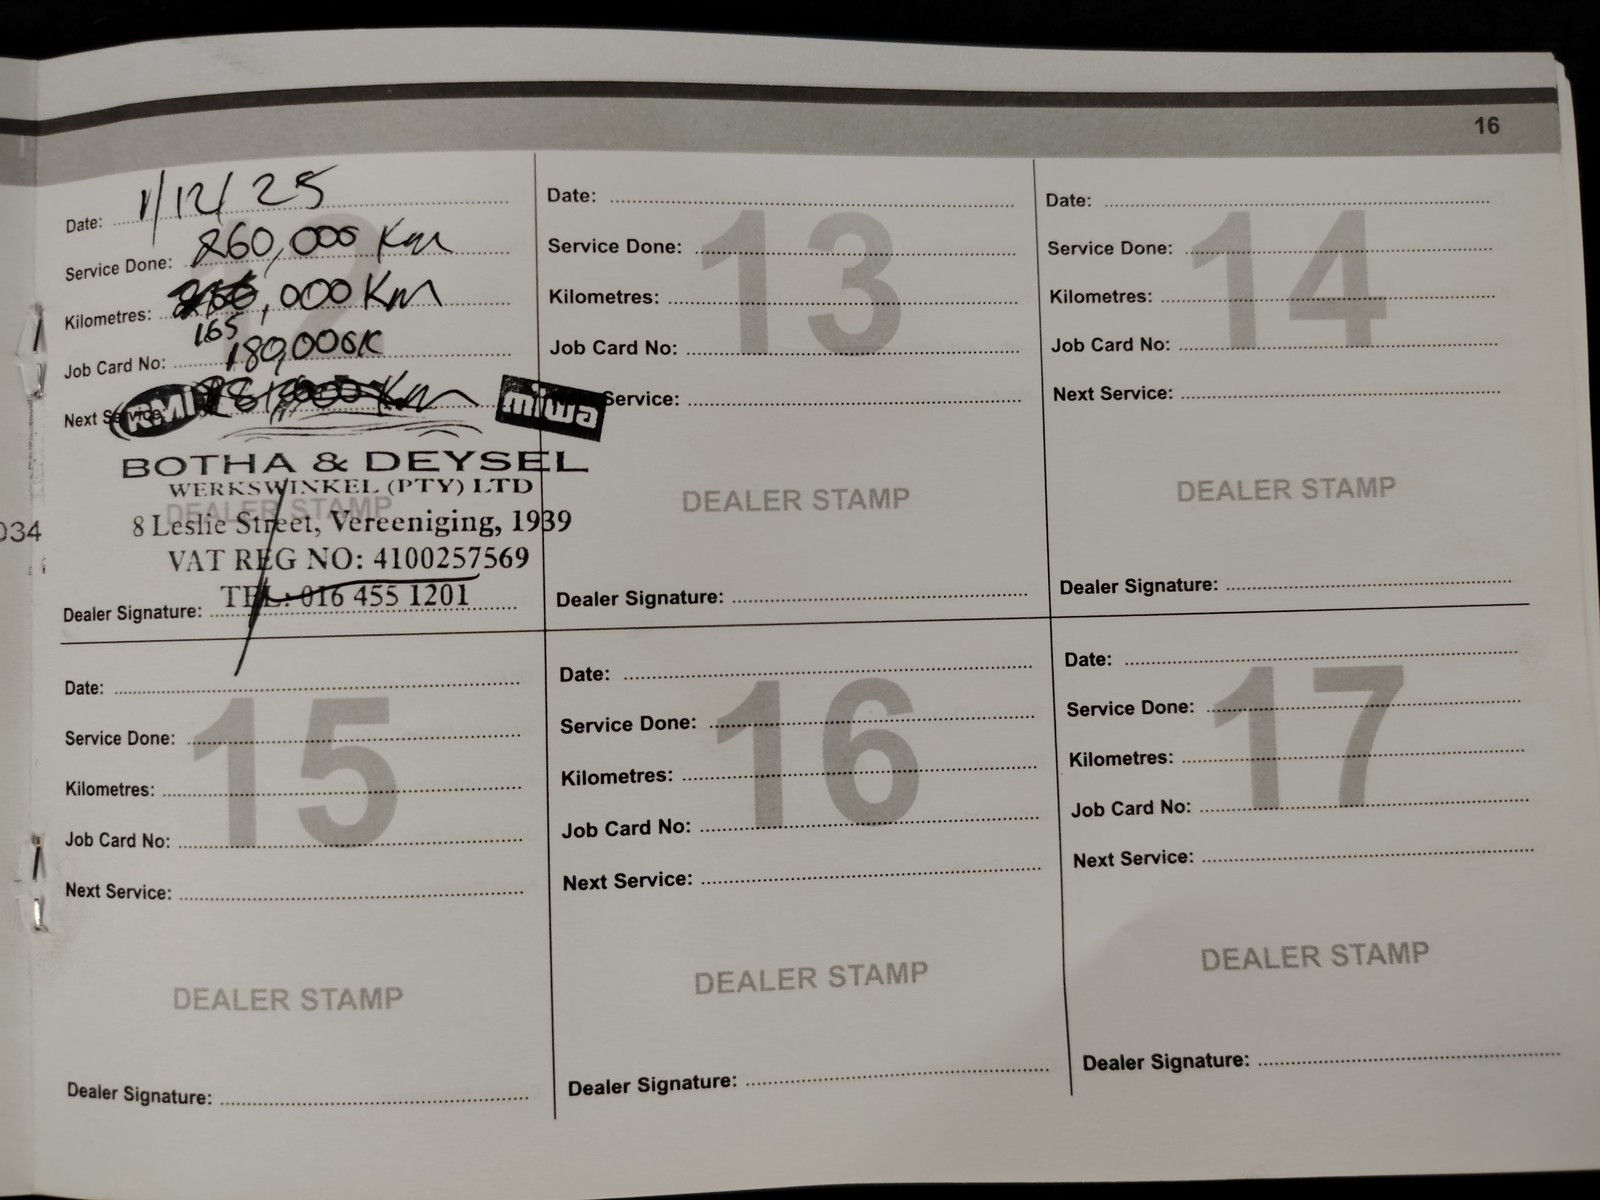 16
Date: 1/12/25
Service Done: 260,000 Km
Kilometres: ,000 Km
165
Job Card No: 180,000K
Next Service:
RMI
miwa
BOTHA & DEYSEL
WERKSWINKEL (PTY) LTD
DEALER STAMP
8 Leslie Street, Vereeniging, 1939
VAT REG NO: 4100257569
TEL: 016 455 1201
Dealer Signature:
034
13
Date:
Service Done:
Kilometres:
Job Card No:
Service:
DEALER STAMP
Dealer Signature:
14
Date:
Service Done:
Kilometres:
Job Card No:
Next Service:
DEALER STAMP
Dealer Signature:
15
Date:
Service Done:
Kilometres:
Job Card No:
Next Service:
DEALER STAMP
Dealer Signature:
16
Date:
Service Done:
Kilometres:
Job Card No:
Next Service:
DEALER STAMP
Dealer Signature:
17
Date:
Service Done:
Kilometres:
Job Card No:
Next Service:
DEALER STAMP
Dealer Signature: